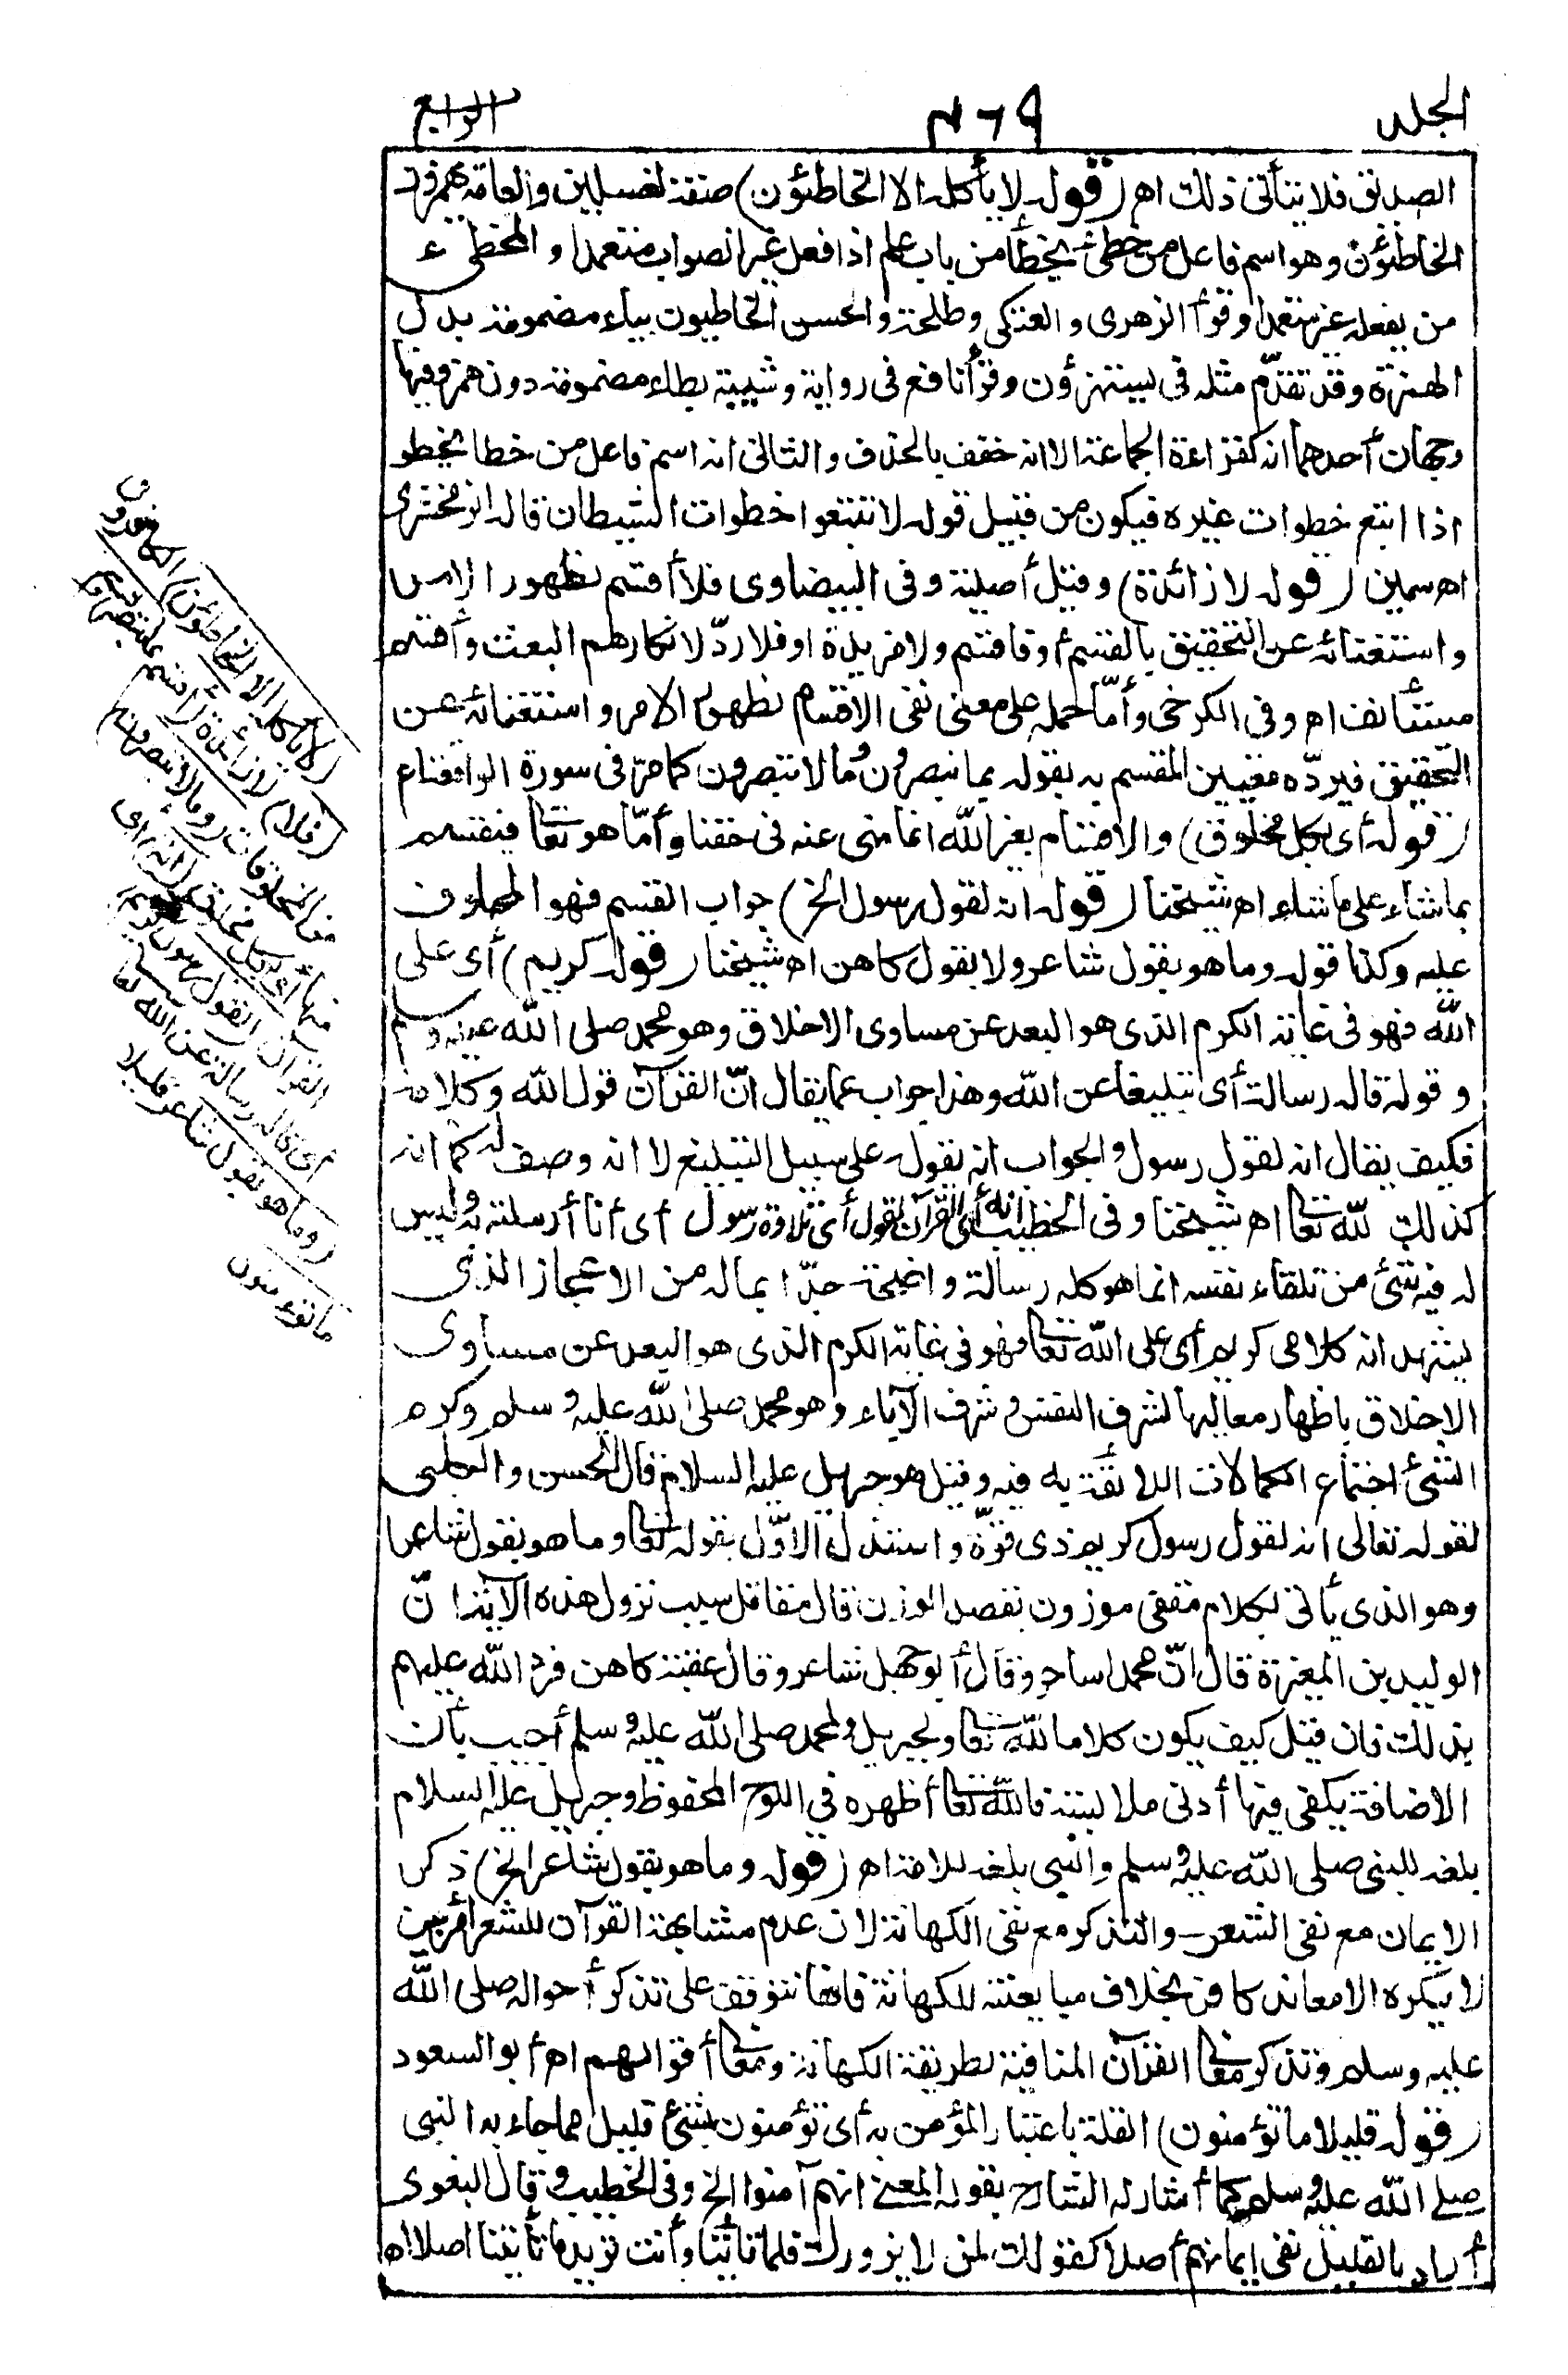 الجلد
٤٦٩
الرابع
الصديق فلا يتأتى ذلك اھ (قوله لا يأكله الا الخاطئون) صفة لغسلين والعامة يهمزون
الخاطئون وهو اسم فاعل من خطئ يخطأ من باب علم اذا فعل غير الصواب متعمدا والمخطئ
من يفعله غير متعمد وقرأ الزهرى والعتكى وطلحة والحسن الخاطيون بياء مضمومة بدل
الهمزة وقد تقدّم مثله فى يستهزؤن وقرأ نافع فى رواية وشيبة بطاء مضمومة دون همز وفيها
وجهان أحدهما انه كقراءة الجماعة الا انه خفف بالحذف والثانى انه اسم فاعل من خطا يخطو
اذا اتبع خطوات غيره فيكون من قبيل قوله لا تتبعوا خطوات الشيطان قاله الزمخشرى
اھ سمين (قوله لا زائدة) وقيل أصلية وفى البيضاوى فلا أقسم لظهور الامر
واستغنائه عن التحقيق بالقسم أو فاقسم ولا مزيدة او فلا ردّ لانكارهم البعث وأقسم
مستأنف اھ وفى الكرخى وأمّا حمله على معنى نفى الاقسام لظهور الامر واستغنائه عن
التحقيق فيردّه تعيين المقسم به بقوله بما تبصرون وما لا تبصرون كما مرّ فى سورة الواقعة اھ
(قوله أى بكل مخلوق) والاقسام بغير الله انما نهى عنه فى حقنا وأمّا هو تعالى فيقسم
بما شاء على ما شاء اھ شيخنا (قوله انه لقول رسول الخ) جواب القسم فهو المحلوف
عليه وكذا قوله وما هو بقول شاعر ولا بقول كاهن اھ شيخنا (قوله كريم) أى على
الله فهو فى غاية الكرم الذى هو البعد عن مساوى الاخلاق وهو محمد صلى الله عليه وسلم
وقوله قاله رسالة أى تبليغا عن الله وهذا جواب عما يقال انّ القرآن قول الله وكلامه
فكيف يقال انه لقول رسول والجواب انه يقوله على سبيل التبليغ لا انه وصف له كما انه
كذلك لله تعالى اھ شيخنا وفى الخطيب انه أى القرآن لقول أى تلاوة رسول أى أنا أرسلته به وليس
له فيه شئ من تلقاء نفسه انما هو كله رسالة واضحة جدّا بما له من الاعجاز الذى
يشهد انه كلامى كريم أى على الله تعالى فهو فى غاية الكرم الذى هو البعد عن مساوى
الاخلاق باظهار معاليها لشرف النفس وشرف الآباء وهو محمد صلى الله عليه وسلم وكرم
الشئ اجتماع الكمالات اللائقة به فيه وقيل هو جبريل عليه السلام قال الحسن والكلبى
لقوله تعالى انه لقول رسول كريم ذى قوّة واستدل الاوّل بقوله تعالى وما هو بقول شاعر
وهو الذى يأتى بكلام مقفى موزون بقصد الوزن قال مقاتل سبب نزول هذه الآية انّ
الوليد بن المغيرة قال انّ محمدا ساحر وقال أبو جهل شاعر وقال عقبة كاهن فرد الله عليهم
بذلك فان قيل كيف يكون كلاما لله تعالى ولجبريل ولمحمد صلى الله عليه وسلم أجيب بأن
الاضافة يكفى فيها أدنى ملابسة فالله تعالى أظهره فى اللوح المحفوظ وجبريل عليه السلام
بلغه للنبى صلى الله عليه وسلم والنبى بلغه للامة اھ (قوله وما هو بقول شاعر الخ) ذكر
الايمان مع نفى الشعر والتذكر مع نفى الكهانة لان عدم مشابهة القرآن للشعر أمر بين
لا ينكره الا معاند كافر بخلاف مباينته للكهانة فانها تتوقف على تذكر أحواله صلى الله
عليه وسلم وتذكر معانى القرآن المنافية لطريقة الكهانة ومعانى أقوالهم اھ أبو السعود
(قوله قليلا ما تؤمنون) القلة باعتبار المؤمن به أى تؤمنون بشئ قليل مما جاء به النبى
صلى الله عليه وسلم كما أشار له الشارح بقوله المعنى انهم آمنوا الخ وفى الخطيب وقال البغوى
أراد بالقليل نفى ايمانهم أصلا كقولك لمن لا يزورك قلما تأتينا وأنت تريد ما تأتينا اصلا اھ
(لا يأكله الا الخاطئون) الكافرون
(فلا) لا زائدة (أقسم بما تبصرون)
من المخلوقات (وما لا تبصرون)
منها أى بكل مخلوق (انه) أى
القرآن (لقول رسول كريم)
أى قاله رسالة عن الله تعالى
(وما هو بقول شاعر قليلا
ما تؤمنون